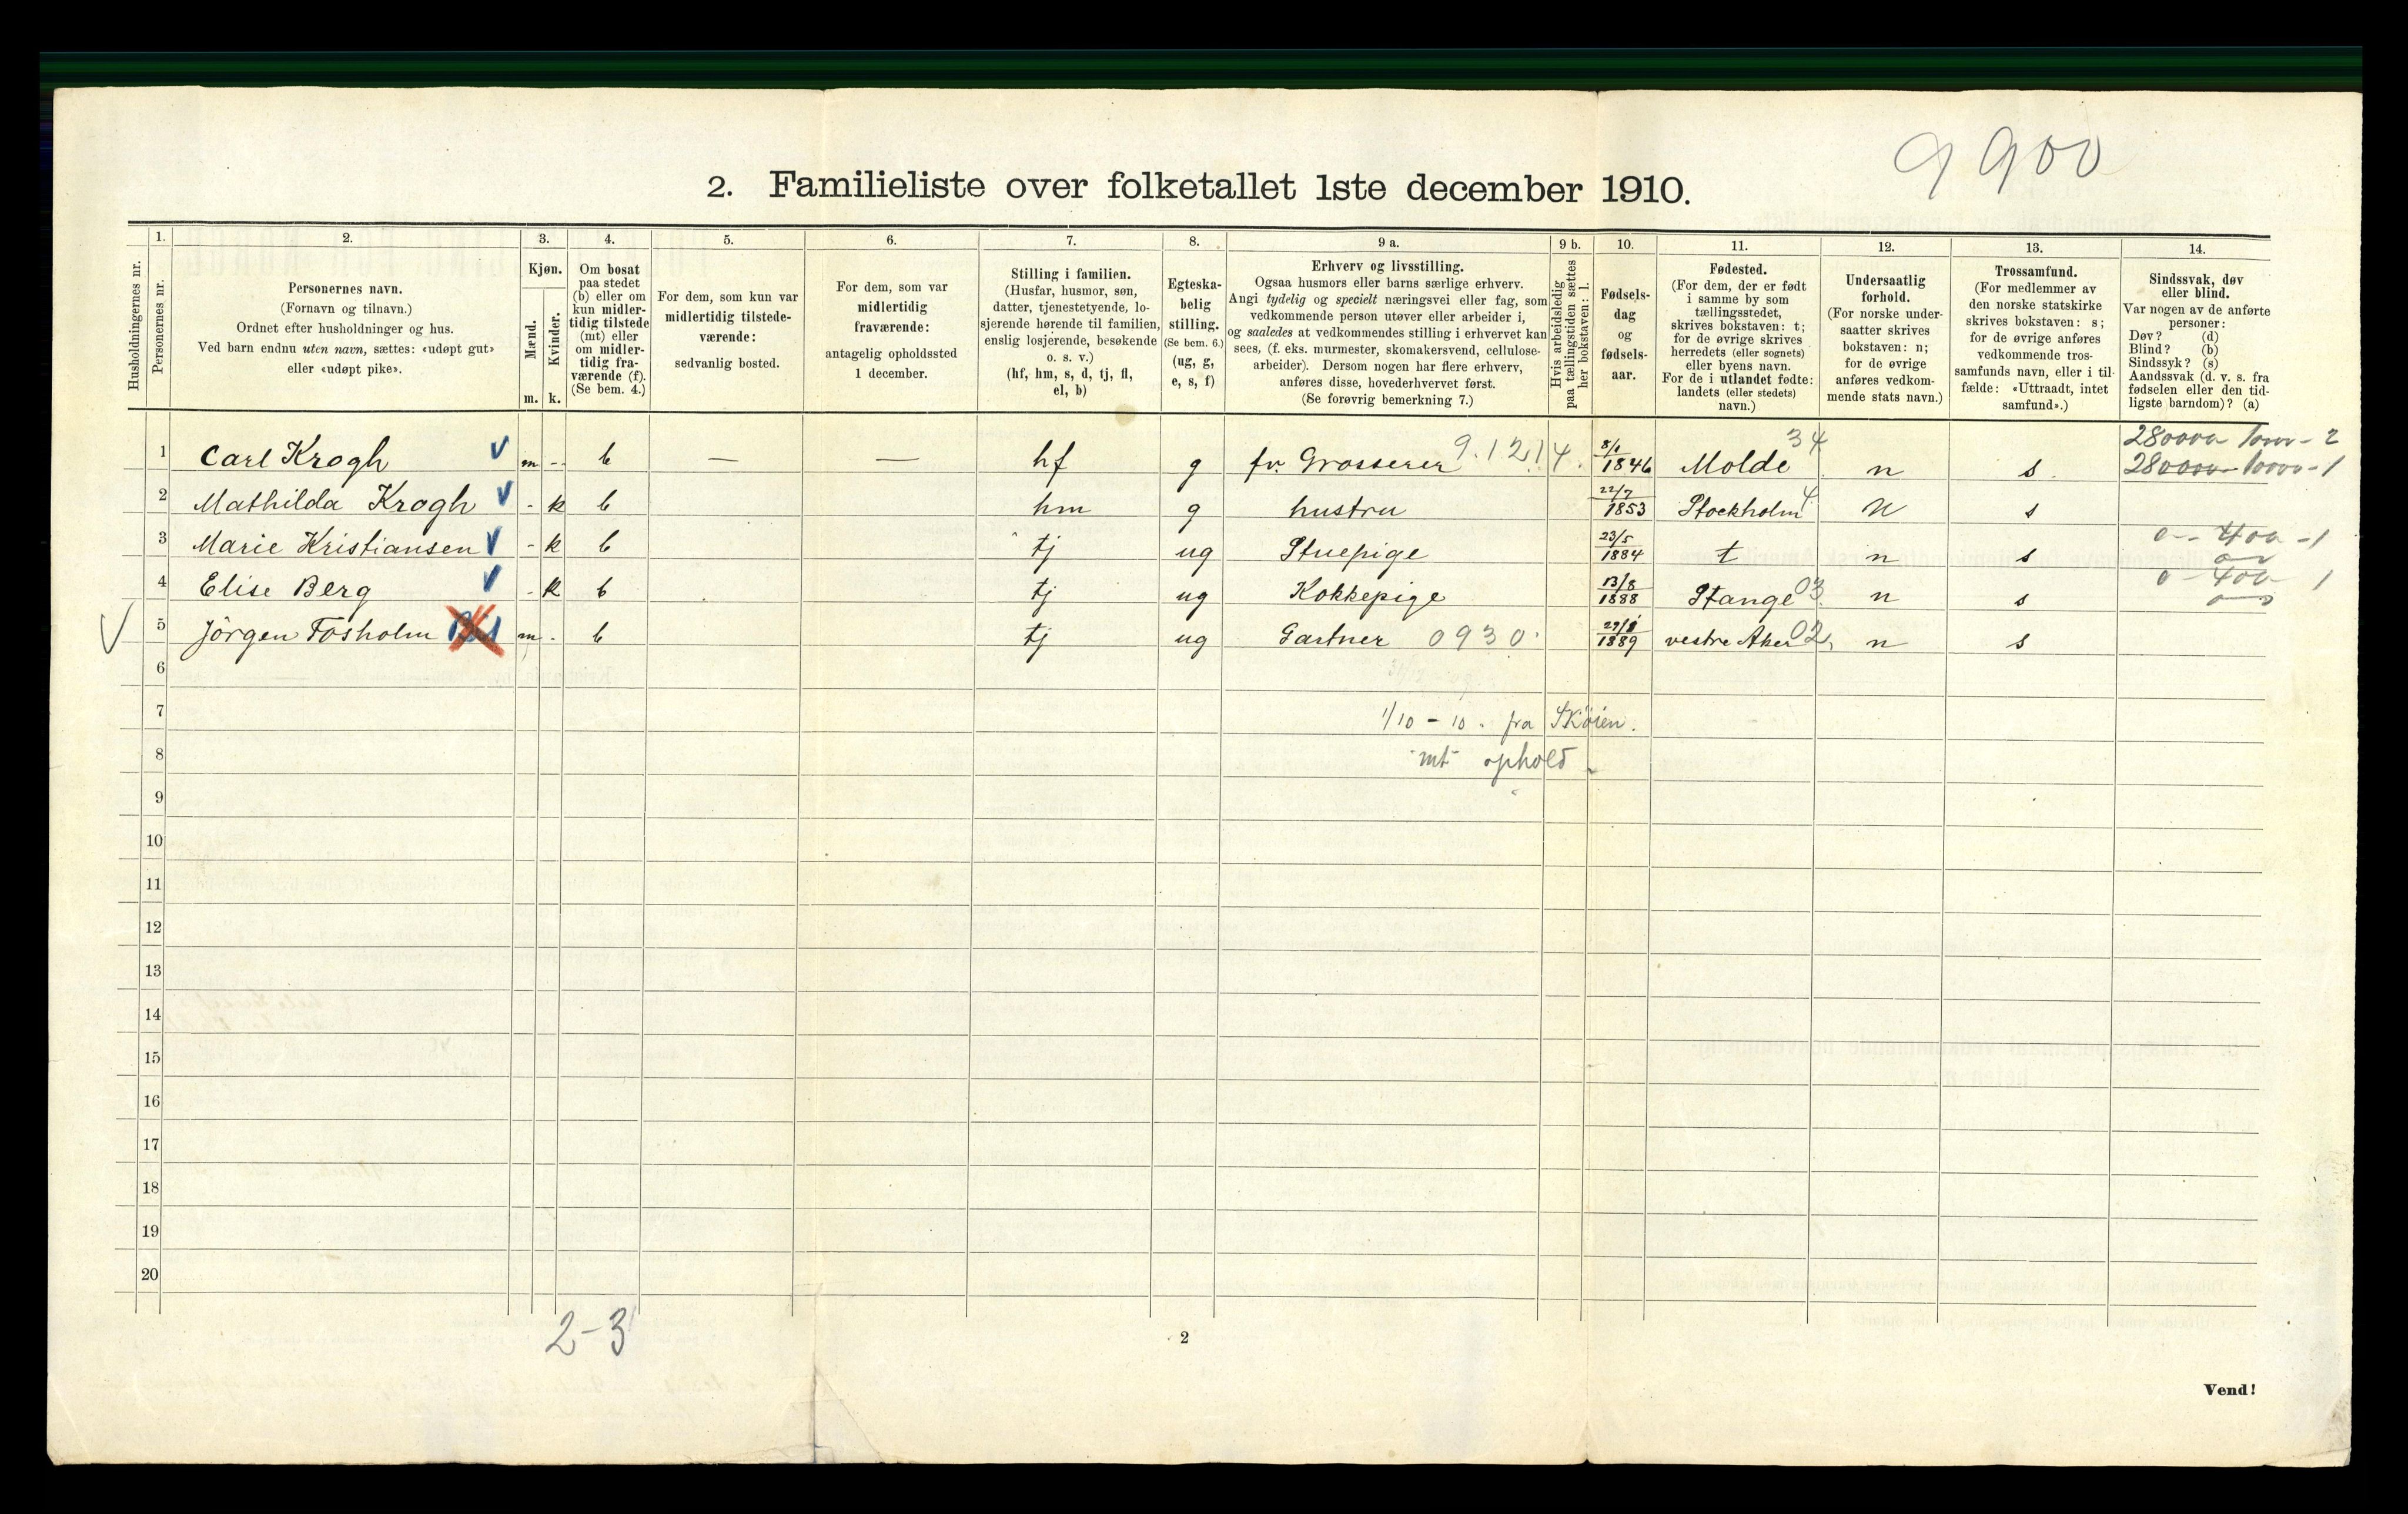 9 900
2. Familieliste over folketallet 1ste december 1910.
Husholdningernes nr.
1.
Personernes nr.
2.
Personernes navn.
(Fornavn og tilnavn.)
Ordnet efter husholdninger og hus.
Ved barn endnu uten navn, sættes: «udøpt gut»
eller «udøpt pike».
3.
Kjøn.
Mænd.
Kvinder.
m. k.
4.
Om bosat
paa stedet
(b) eller om
kun midler-
tidig tilstede
(mt) eller
om midler-
tidig fra-
værende (f).
(Se bem. 4.)
5.
For dem, som kun var
midlertidig tilstede-
værende:
sedvanlig bosted.
6.
For dem, som var
midlertidig
fraværende:
antagelig opholdssted
1 december.
7.
Stilling i familien.
(Husfar, husmor, søn,
datter, tjenestetyende, lo-
sjerende hørende til familien,
enslig losjerende, besøkende
o. s. v.)
(hf, hm, s, d, tj, fl,
el, b)
8.
Egteska-
belig
stilling.
(Se bem. 6.)
(ug, g,
e, s, f)
9 a.
Erhverv og livsstilling.
Ogsaa husmors eller barns særlige erhverv.
Angi tydelig og specielt næringsvei eller fag, som
vedkommende person utøver eller arbeider i,
og saaledes at vedkommendes stilling i erhvervet kan
sees, (f. eks. murmester, skomakersvend, cellulose-
arbeider). Dersom nogen har flere erhverv,
anføres disse, hovederhvervet først.
(Se forøvrig bemerkning 7.)
9 b.
Hvis arbeidsledig
paa tællingstiden sættes
her bokstaven: l.
10.
Fødsels-
dag
og
fødsels-
aar.
11.
Fødested.
(For dem, der er født
i samme by som
tællingsstedet,
skrives bokstaven: t;
for de øvrige skrives
herredets (eller sognets)
eller byens navn.
For de i utlandet fødte:
landets (eller stedets)
navn.)
12.
Undersaatlig
forhold.
(For norske under-
saatter skrives
bokstaven: n;
for de øvrige
anføres vedkom-
mende stats navn.)
13.
Trossamfund.
(For medlemmer av
den norske statskirke
skrives bokstaven: s;
for de øvrige anføres
vedkommende tros-
samfunds navn, eller i til-
fælde: «Uttraadt, intet
samfund».)
14.
Sindssvak, døv
eller blind.
Var nogen av de anførte
personer:
Døv? (d)
Blind? (b)
Sindssyk? (s)
Aandssvak (d. v. s. fra
fødselen eller den tid-
ligste barndom)? (a)
1 Carl Krogh m - b — — hf g fv. Grosserer 9.12 14. 8/1 1846 Molde 34 n s
2 Mathilda Krogh - k b hm g hustru 22/7 1853 Stockholm 4 n s
3 Marie Kristiansen - k b tj ug Stuepige 23/5 1884 t n s 0 - 400 - 1
4 Elise Berg - k b tj ug Kokkepige 13/8 1888 Stange 03 n s 0 - 400 1
5 Jörgen Fosholm m - b tj ug Gartner 0930 1889 vestre Aker 02 n s
6
7 1/10 - 10. fra Skøien.
8 mt ophold
9
10
11
12
13
14
15
16
17
18
19
20
2-3
2
Vend!